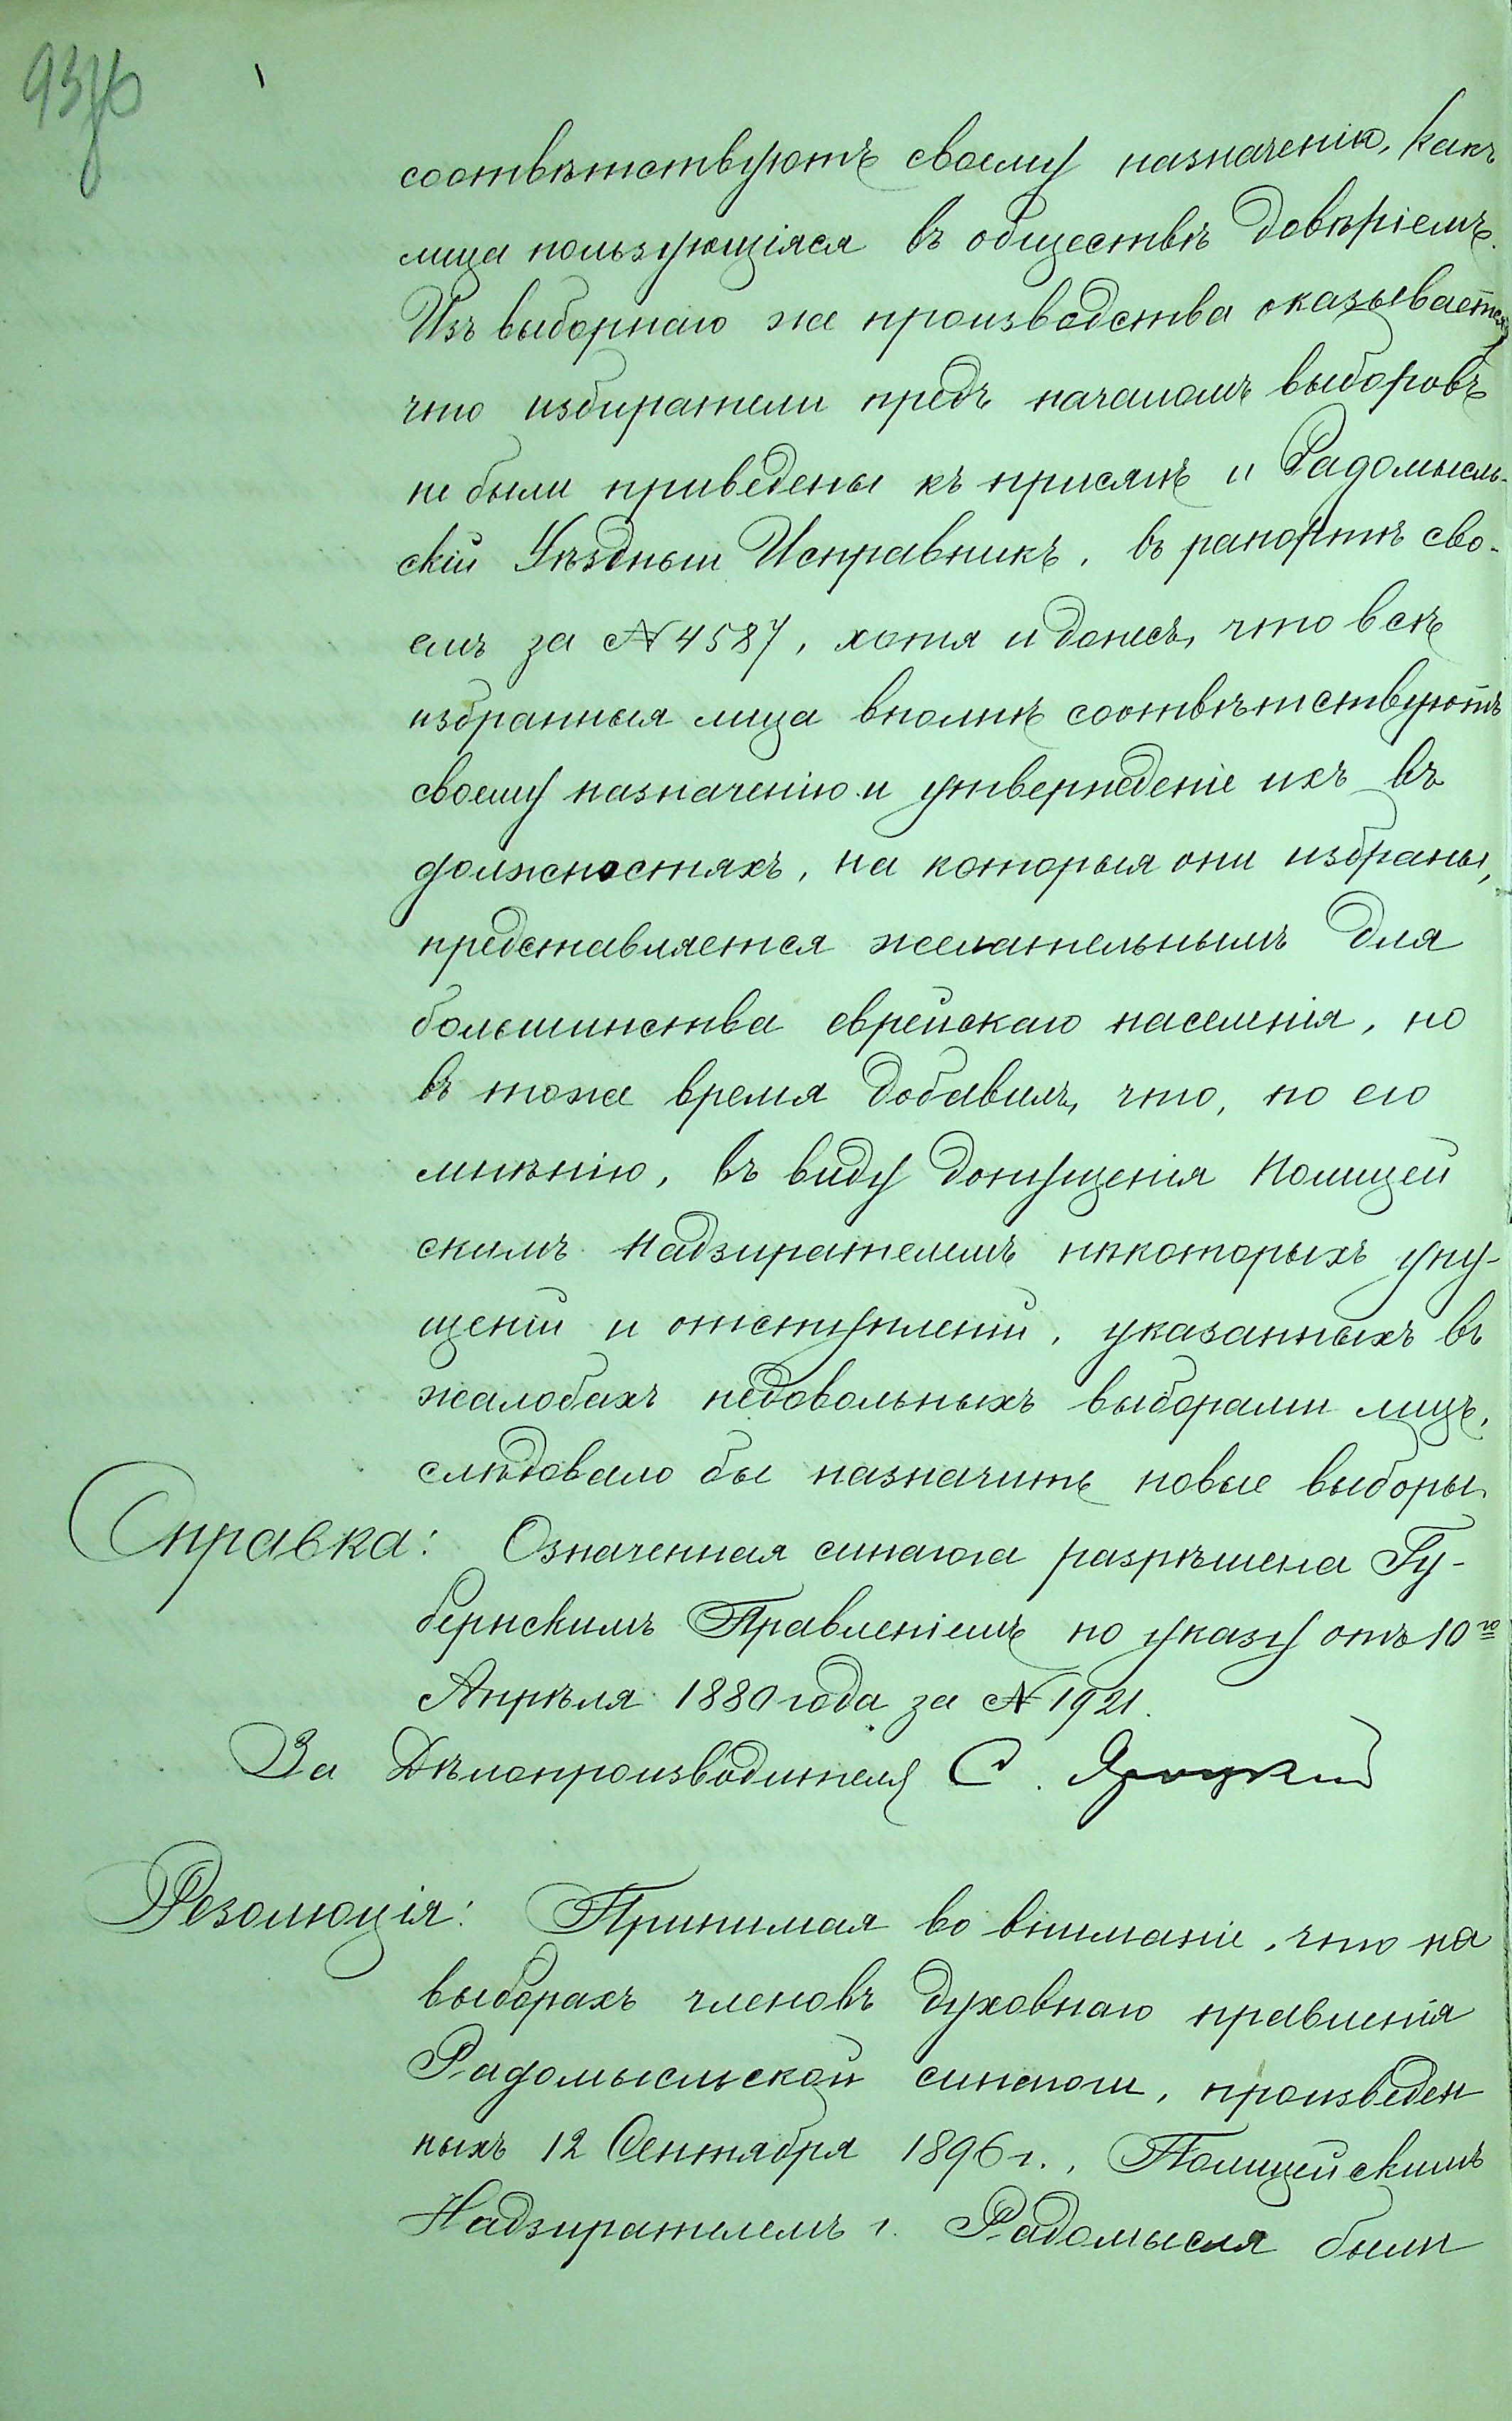 соотвѣтствуютъ своему назначенію, какъ
лица пользующіяся въ обществѣ довѣріемъ.
Изъ выборнаго же производства оказывается,
что избиратели предъ началомъ выборовъ
не были приведены къ присягѣ и Радомысль-
скій Уѣздный Исправникъ, въ рапортѣ сво-
емъ за № 4587, хотя и донесъ, что всѣ
избранныя лица вполнѣ соотвѣтствуютъ
своему назначенію и утвержденіе ихъ въ
должностяхъ, на которыя они избраны,
представляется желательнымъ для
большинства еврейскаго населенія, но
въ тоже время добавилъ, что, по его
мнѣнію, въ виду допущенія Полицей
скимъ Надзирателемъ нѣкоторыхъ упу-
щеній и отступленій, указанныхъ въ
жалобахъ недовольныхъ выборами лицъ,
слѣдовало бы назначить новые выборы.
Справка: Означенная синагога разрѣшена Гу-
бернскимъ Правленіемъ по указу отъ 10го
Апрѣля 1880 года за № 1921.
За Дѣлопроизводителя С.
Резолюція: Принимая во вниманіе, что на
выборахъ членовъ духовнаго правленія
Радомысльской синагоги, произведен
ныхъ 12 Сентября 1896 г., Полицейскимъ
Надзирателемъ г. Радомысля были